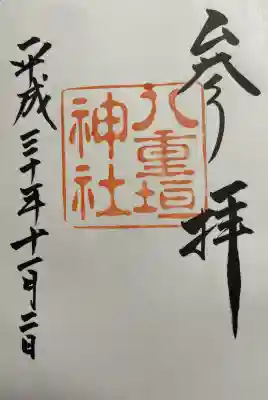 参拝
八重垣
神社
平成三十年十一月二日